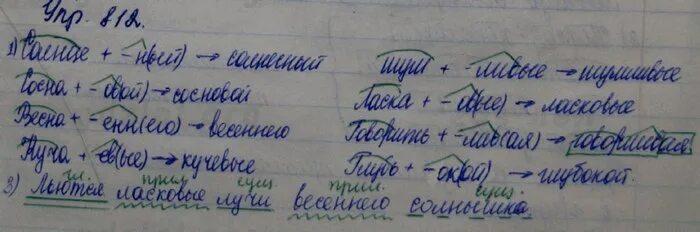 Упр. 812.
1) Солнце + -н(ый) → солнечный
Сосна + -ов(ой) → сосновой
Весна + -енн(его) → весеннего
Куча + -ев(ые) → кучевые
Шум + -ливые → шумливые
Ласка + -ов(ые) → ласковые
Говорить + -лив(ая) → говорливая
Глубь + -ок(ой) → глубокой.
гл. прил. сущ. прил. сущ.
3) Льются ласковые лучи весеннего солнышка